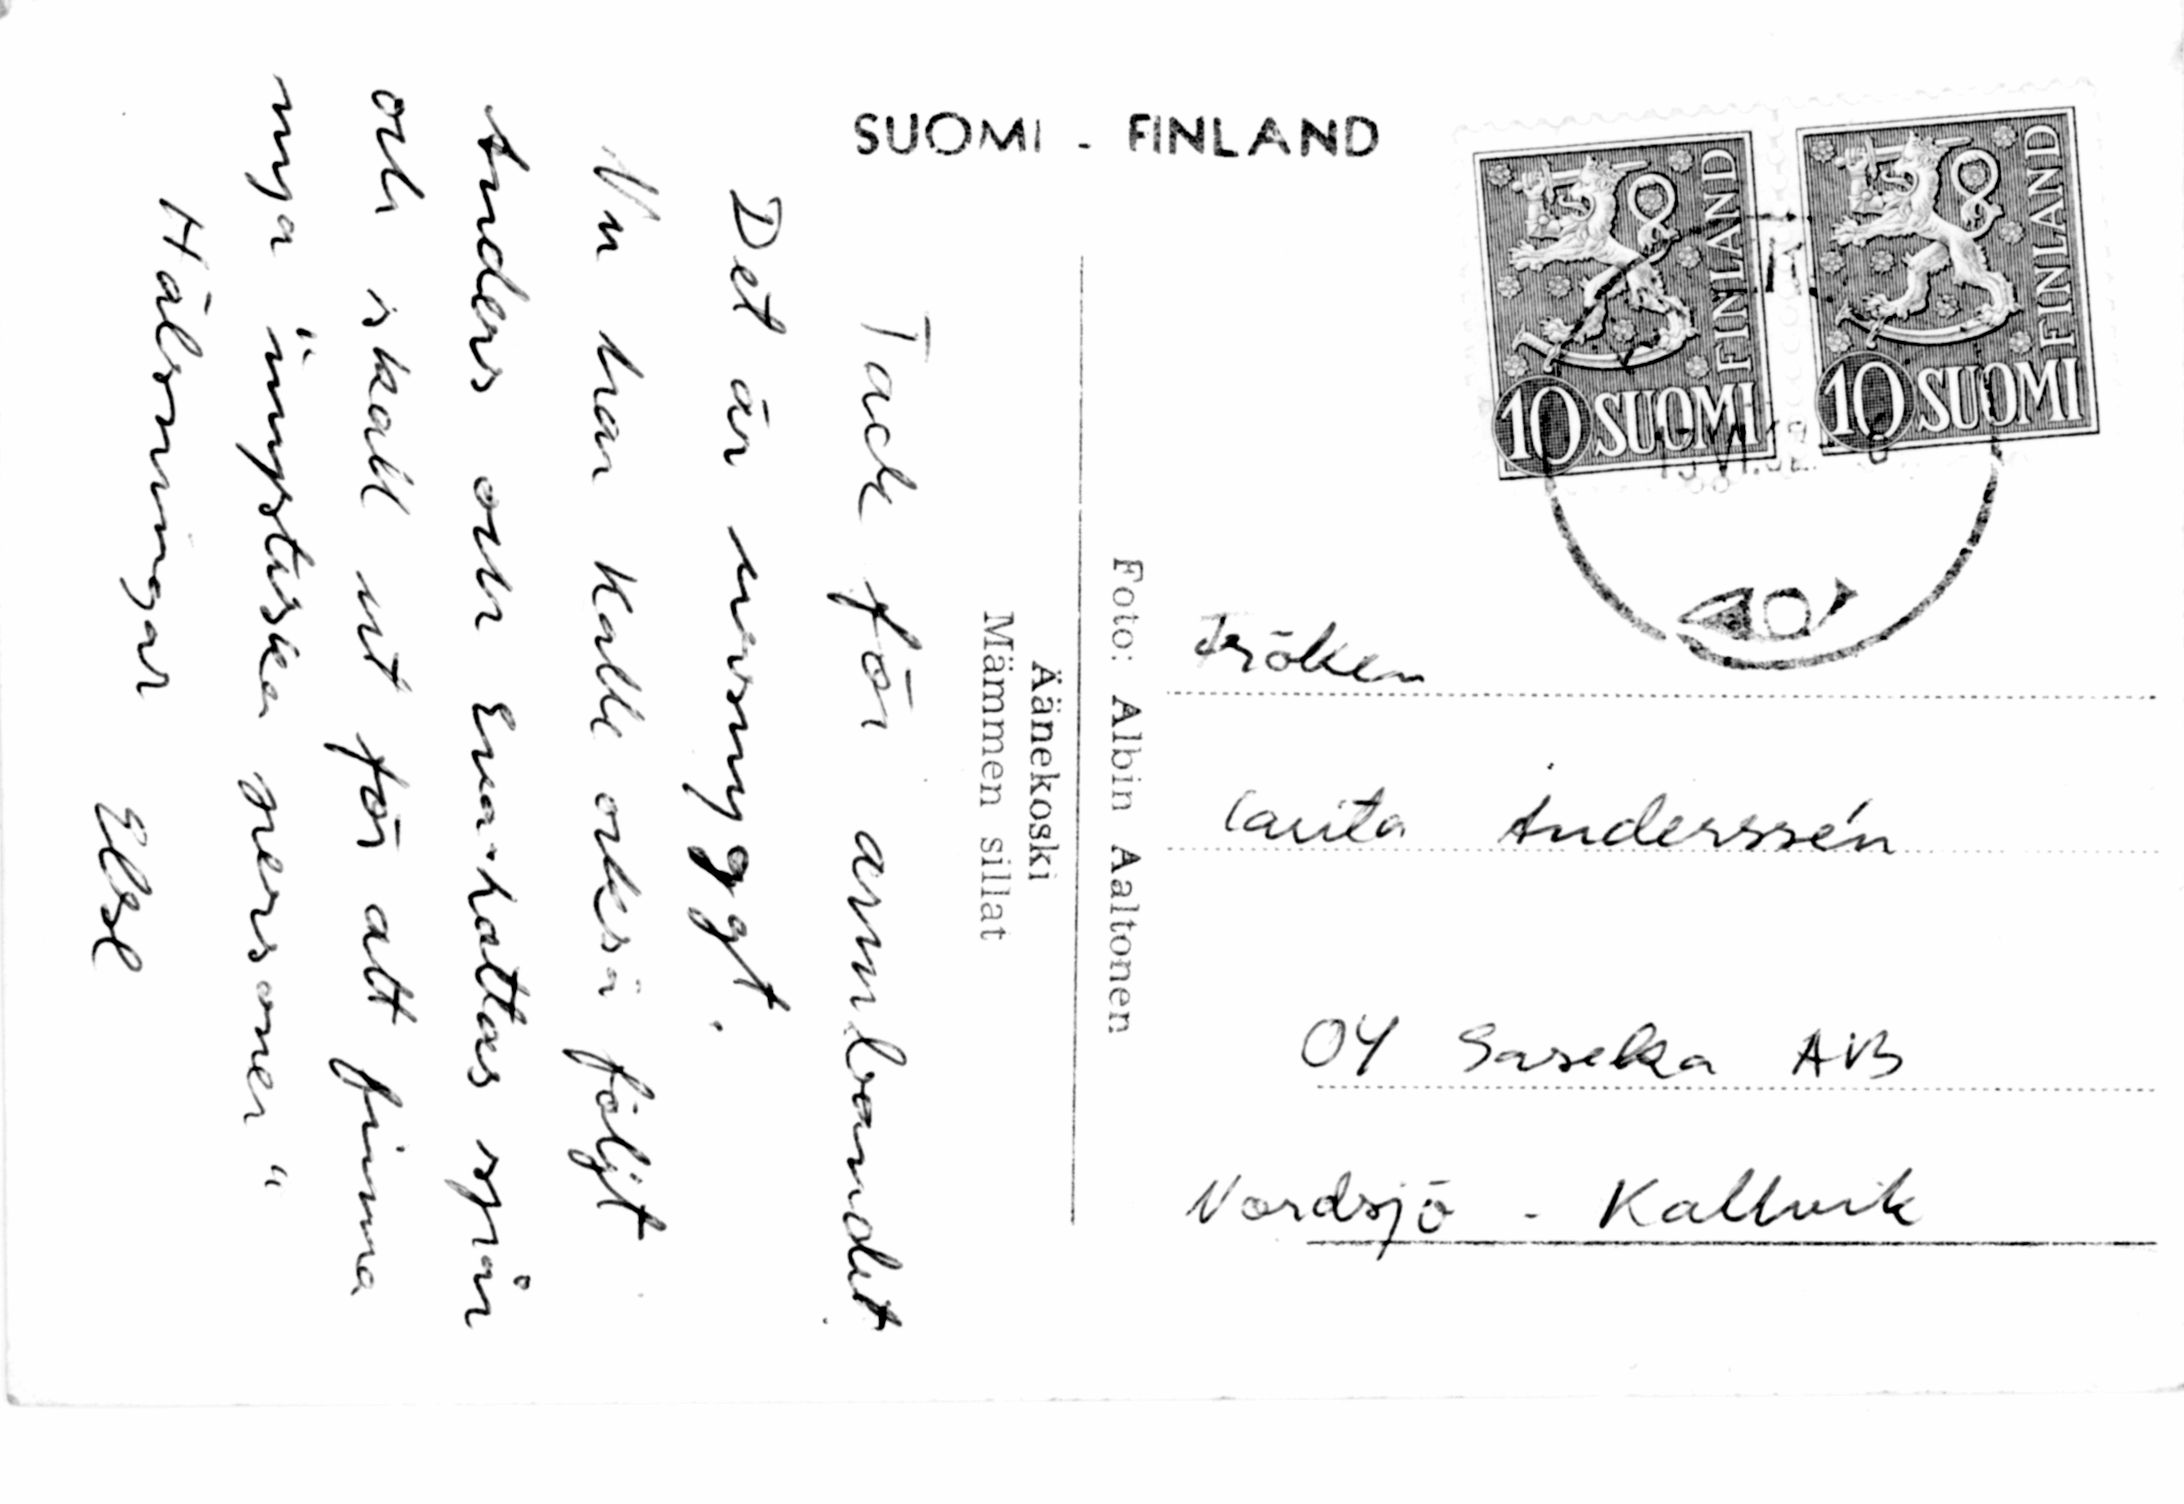 SUOMI - FINLAND
FINLAND
10 SUOMI
FINLAND
10 SUOMI
Tack för armbandet
Det är ursnyggt.
Nu har Kalle också följt
Anders och Eva-Lottas spår
och skall ut för att finna
nya "mystiska personer"
Hälsningar Else
Äänekoski
Mämmen sillat
Foto: Albin Aaltonen
Fröken
Carita Anderssén
OY Saseka AB
Nordsjö - Kallvik